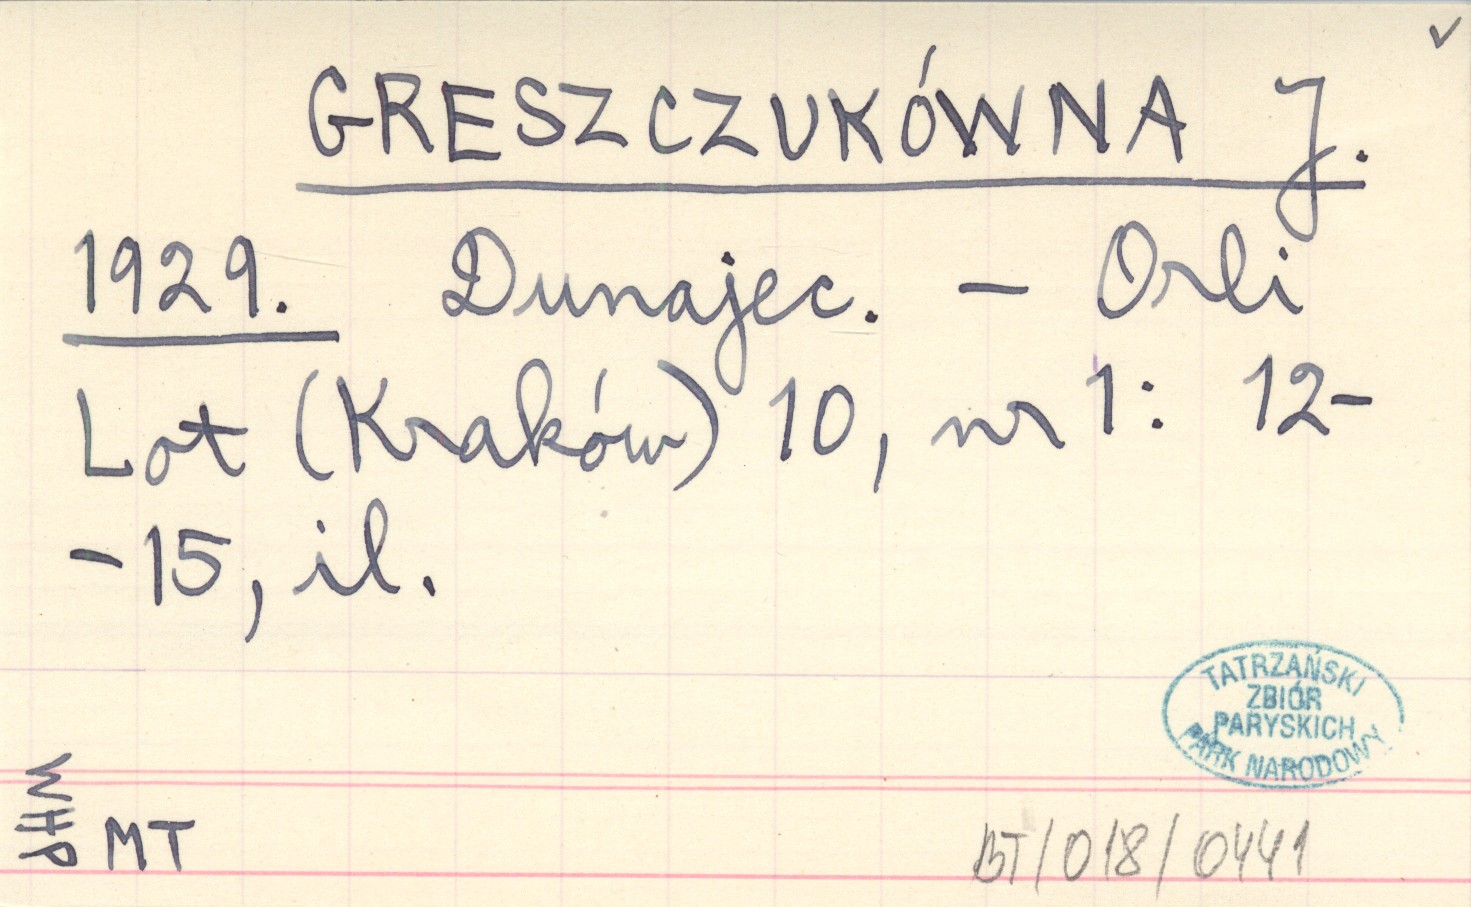 ✓
GRESZCZUKÓWNA J.
1929. Dunajec. – Orli
Lot (Kraków) 10, nr 1: 12-
-15, il.
TATRZAŃSKI
ZBIÓR
PARYSKICH
PARK NARODOWY
WHP
MT
BT/018/0441